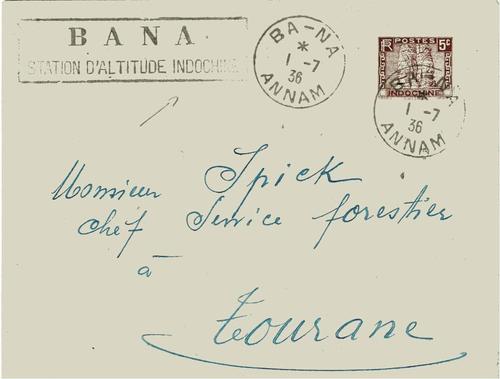 BANA
STATION D'ALTITUDE INDOCHINE
BA-NA
*
1 -7
36
ANNAM
RF POSTES 5c
INDOCHINE
BA-NA
*
1 -7
36
ANNAM
Monsieur Spick
chef Service forestier
à
Tourane